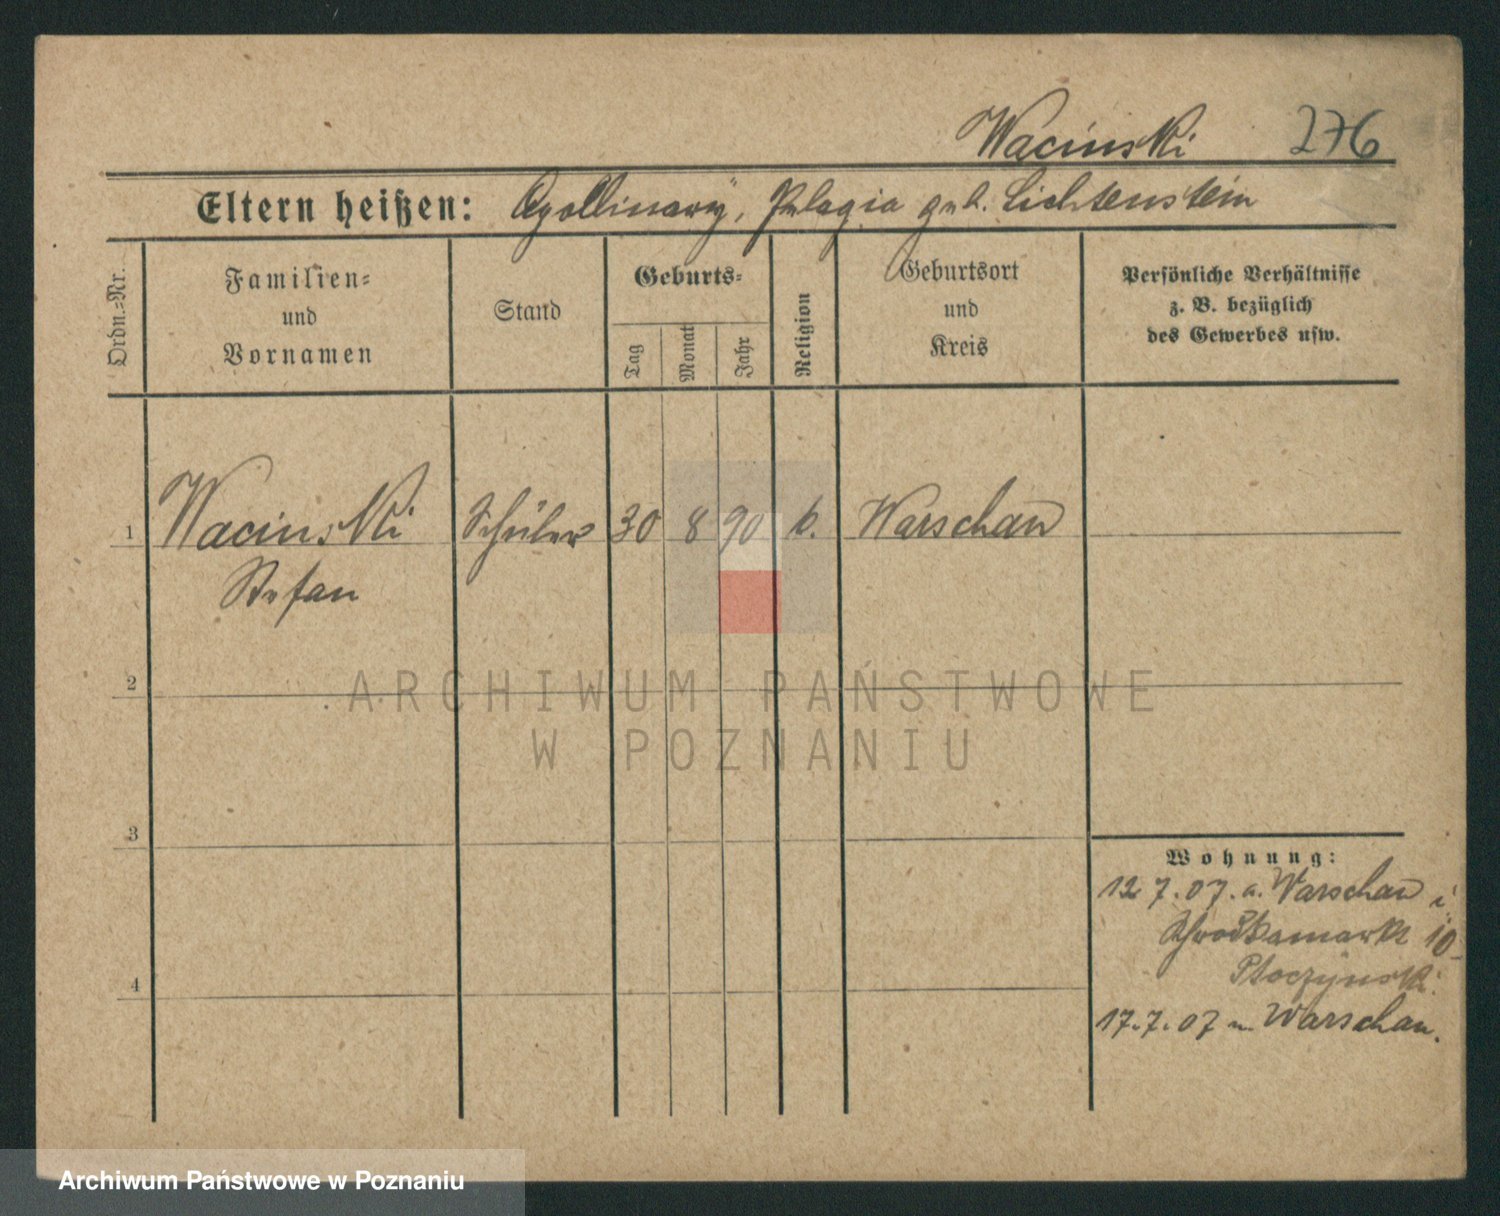 Wacinski 276
Eltern heißen: Apollinary, Pelagia geb. Lichtenstein
Ordn.=Nr.
Familien=
und
Vornamen
Stand
Geburts=
Tag
Monat
Jahr
Religion
Geburtsort
und
Kreis
Persönliche Verhältnisse
z. B. bezüglich
des Gewerbes usw.
1 Wacinski Schüler 30 8 90 k. Warschau
Stefan
2
3
4
Wohnung:
12 7. 07. a. Warschau i.
10
17. 7. 07 n. Warschau.
ARCHIWUM PAŃSTWOWE
W POZNANIU
Archiwum Państwowe w Poznaniu